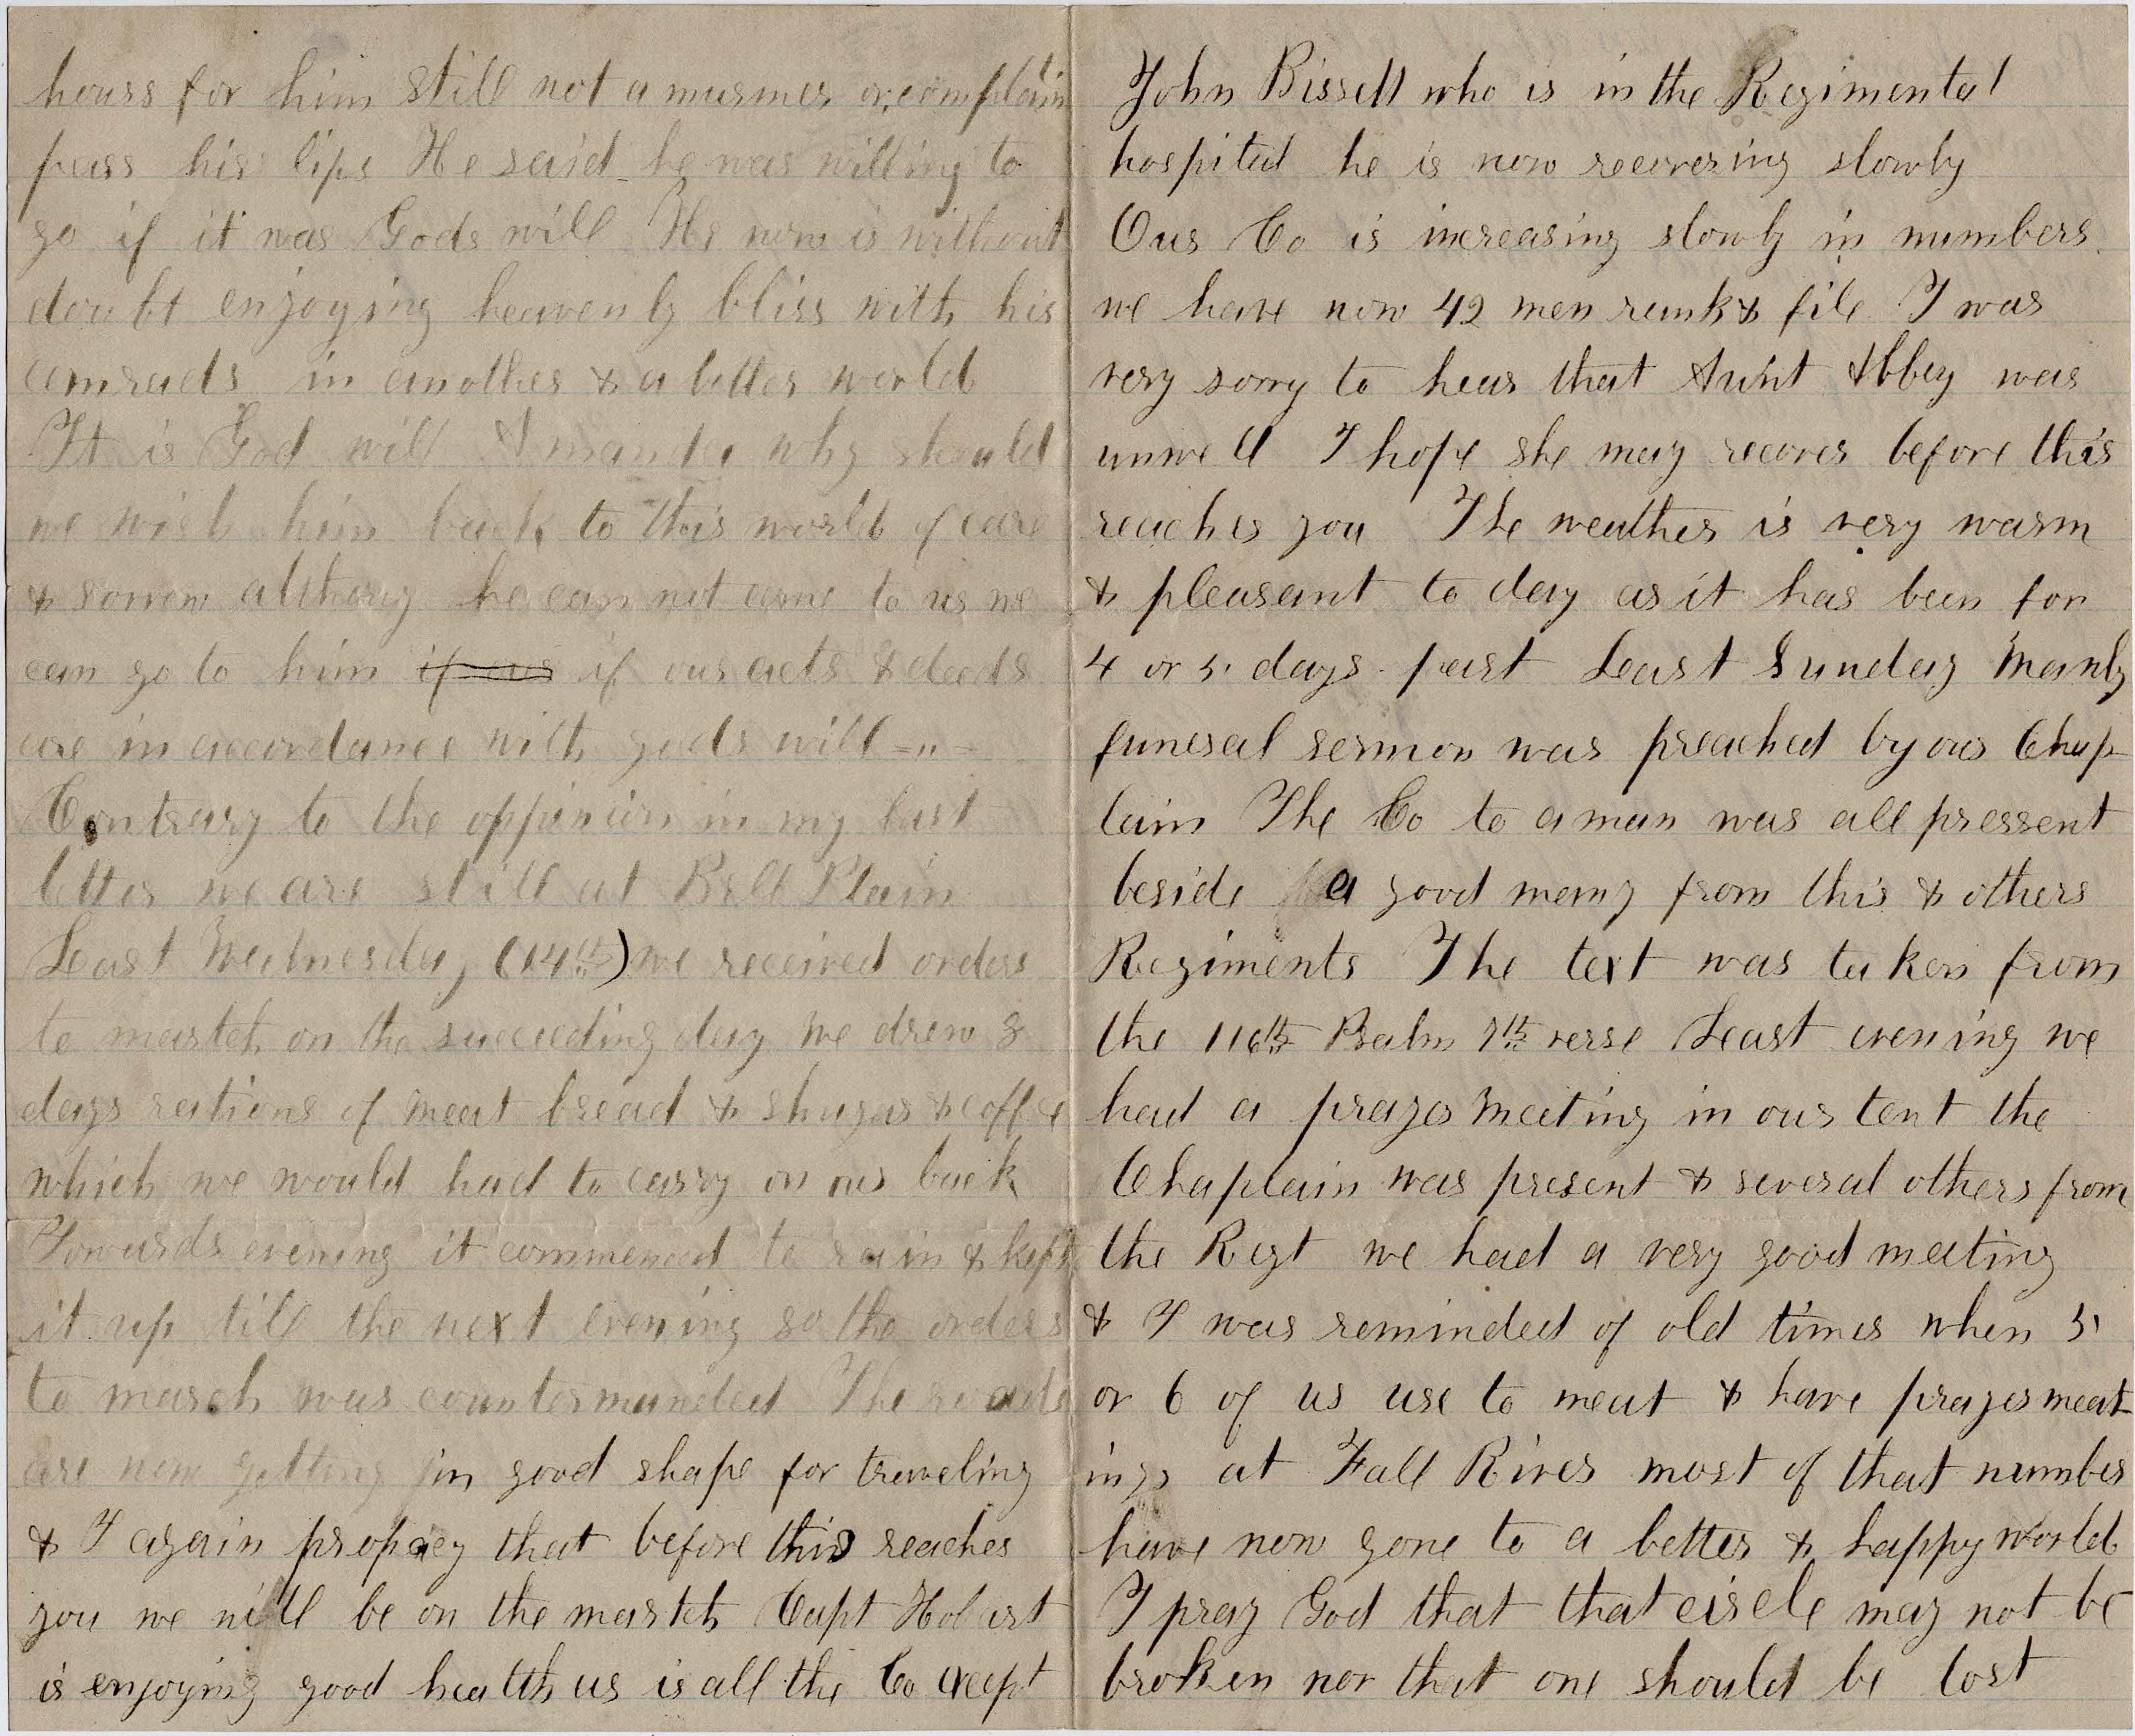 hours for him still not a murmer or complain
pass his lips He said he was willing to
go if it was Gods will He now is without
doubt enjoying heavenly bliss with his
comrads in another & a better world
It is God will Amanda why should
we wish him back to this world of care
& sorrow althoug he can not come to us we
can go to him if our if our acts & deeds
are in accordance with gods will =„=
Contrary to the oppinion in my last
letter we are still at Bell Plain
Last Wednesday (14th) we received orders
to martch on the succeeding day we drew 3
days rations of meat bread & shugar & coffee
which we would had to carry on our back
Towards evening it commenced to rain & kept
it up till the next evening so the orders
to march was countermanded The roads
are now getting in good shape for traveling
& I again propicy that before this reaches
you we will be on the martch Capt Hobart
is enjoying good health as is all the Co except
John Bissell who is in the Regimental
hospital he is now recovering slowly
Our Co is increasing slowly in numbers
we have now 42 men rank & file I was
very sorry to hear that Aunt Abbey was
unwell I hope she may recover before this
reaches you The weather is very warm
& pleasant to day as it has been for
4 or 5 days past Last Sunday Manly
funeral sermon was preached by our Chap
lain The Co to a man was all pressent
beside a good many from this & others
Regiments The text was taken from
the 116th Psalm 7th verse Last evening we
had a prayer meeting in our tent the
Chaplain was present & several others from
the Regt we had a very good meeting
& I was reminded of old times when 5
or 6 of us use to meat & have prayer meat
ings at Fall River most of that number
have now gone to a better & happy world
I pray God that that circle may not be
broken nor that one should be lost